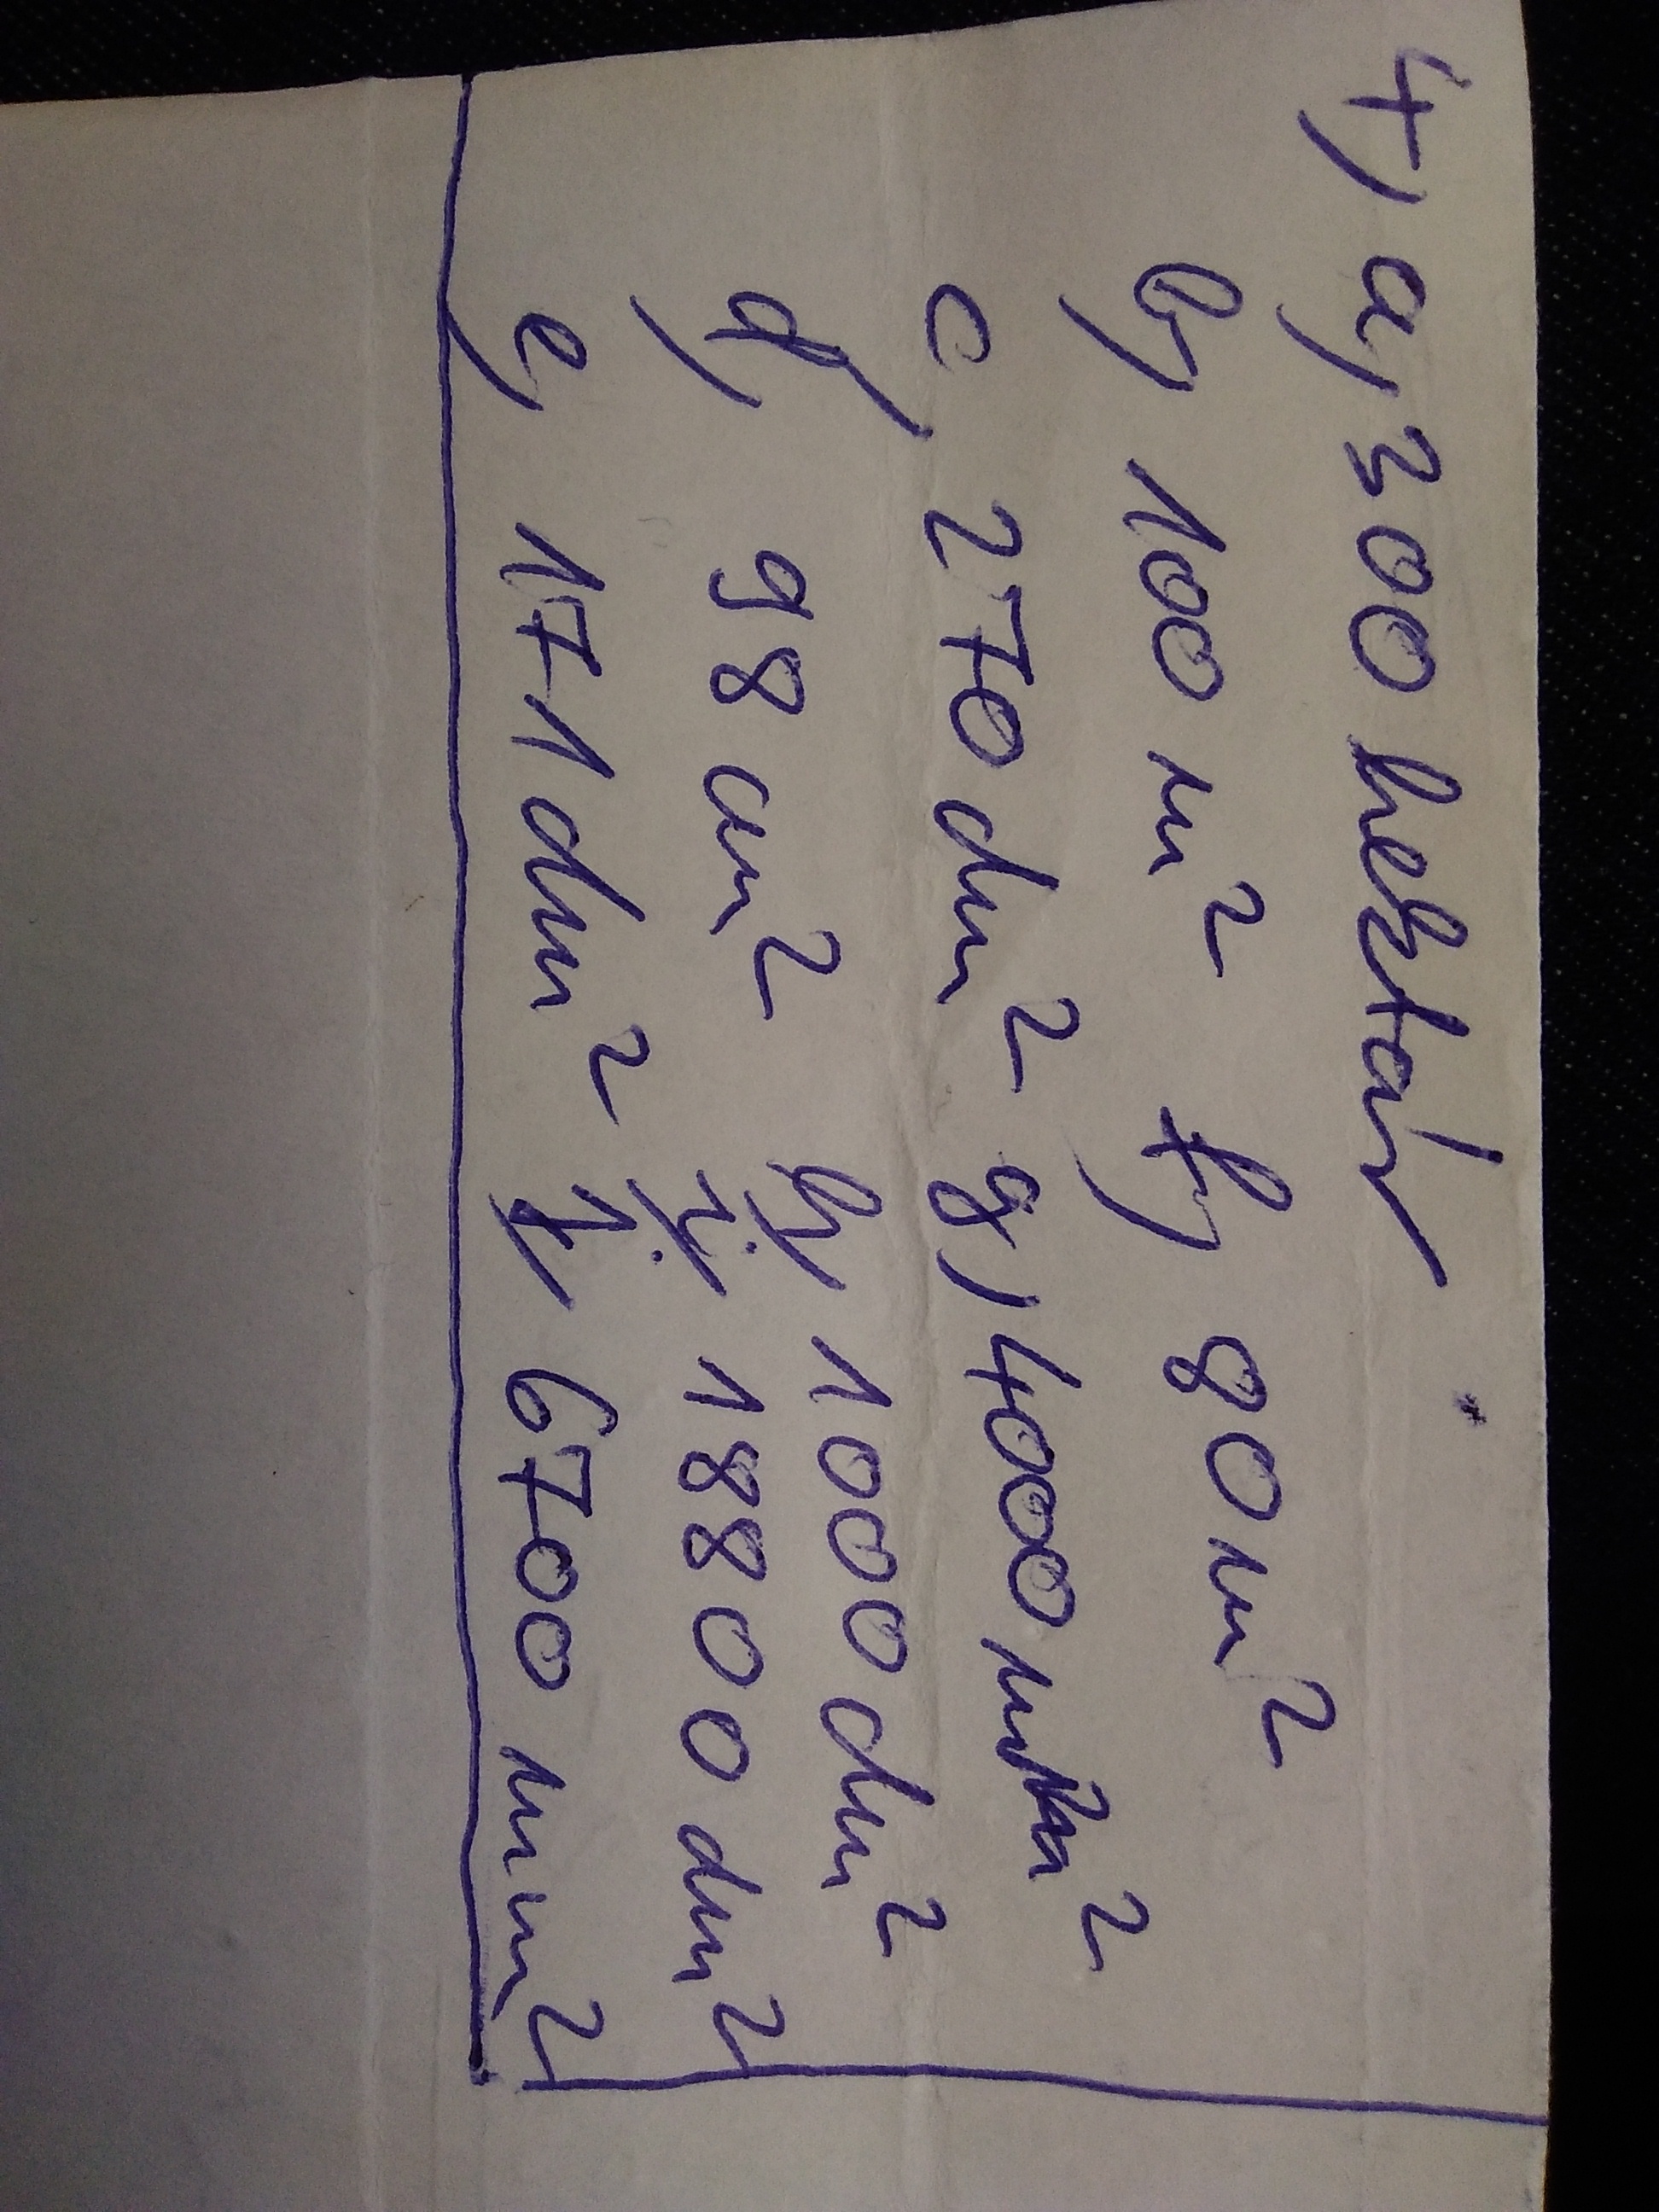 4, a, 300 hektár
b, 100 m² f, 80 m²
c, 270 dm² g, 4000 mm²
d, 98 cm² h, 1000 dm²
i, 18800 dm²
e, 171 dm² j, 6700 mm²